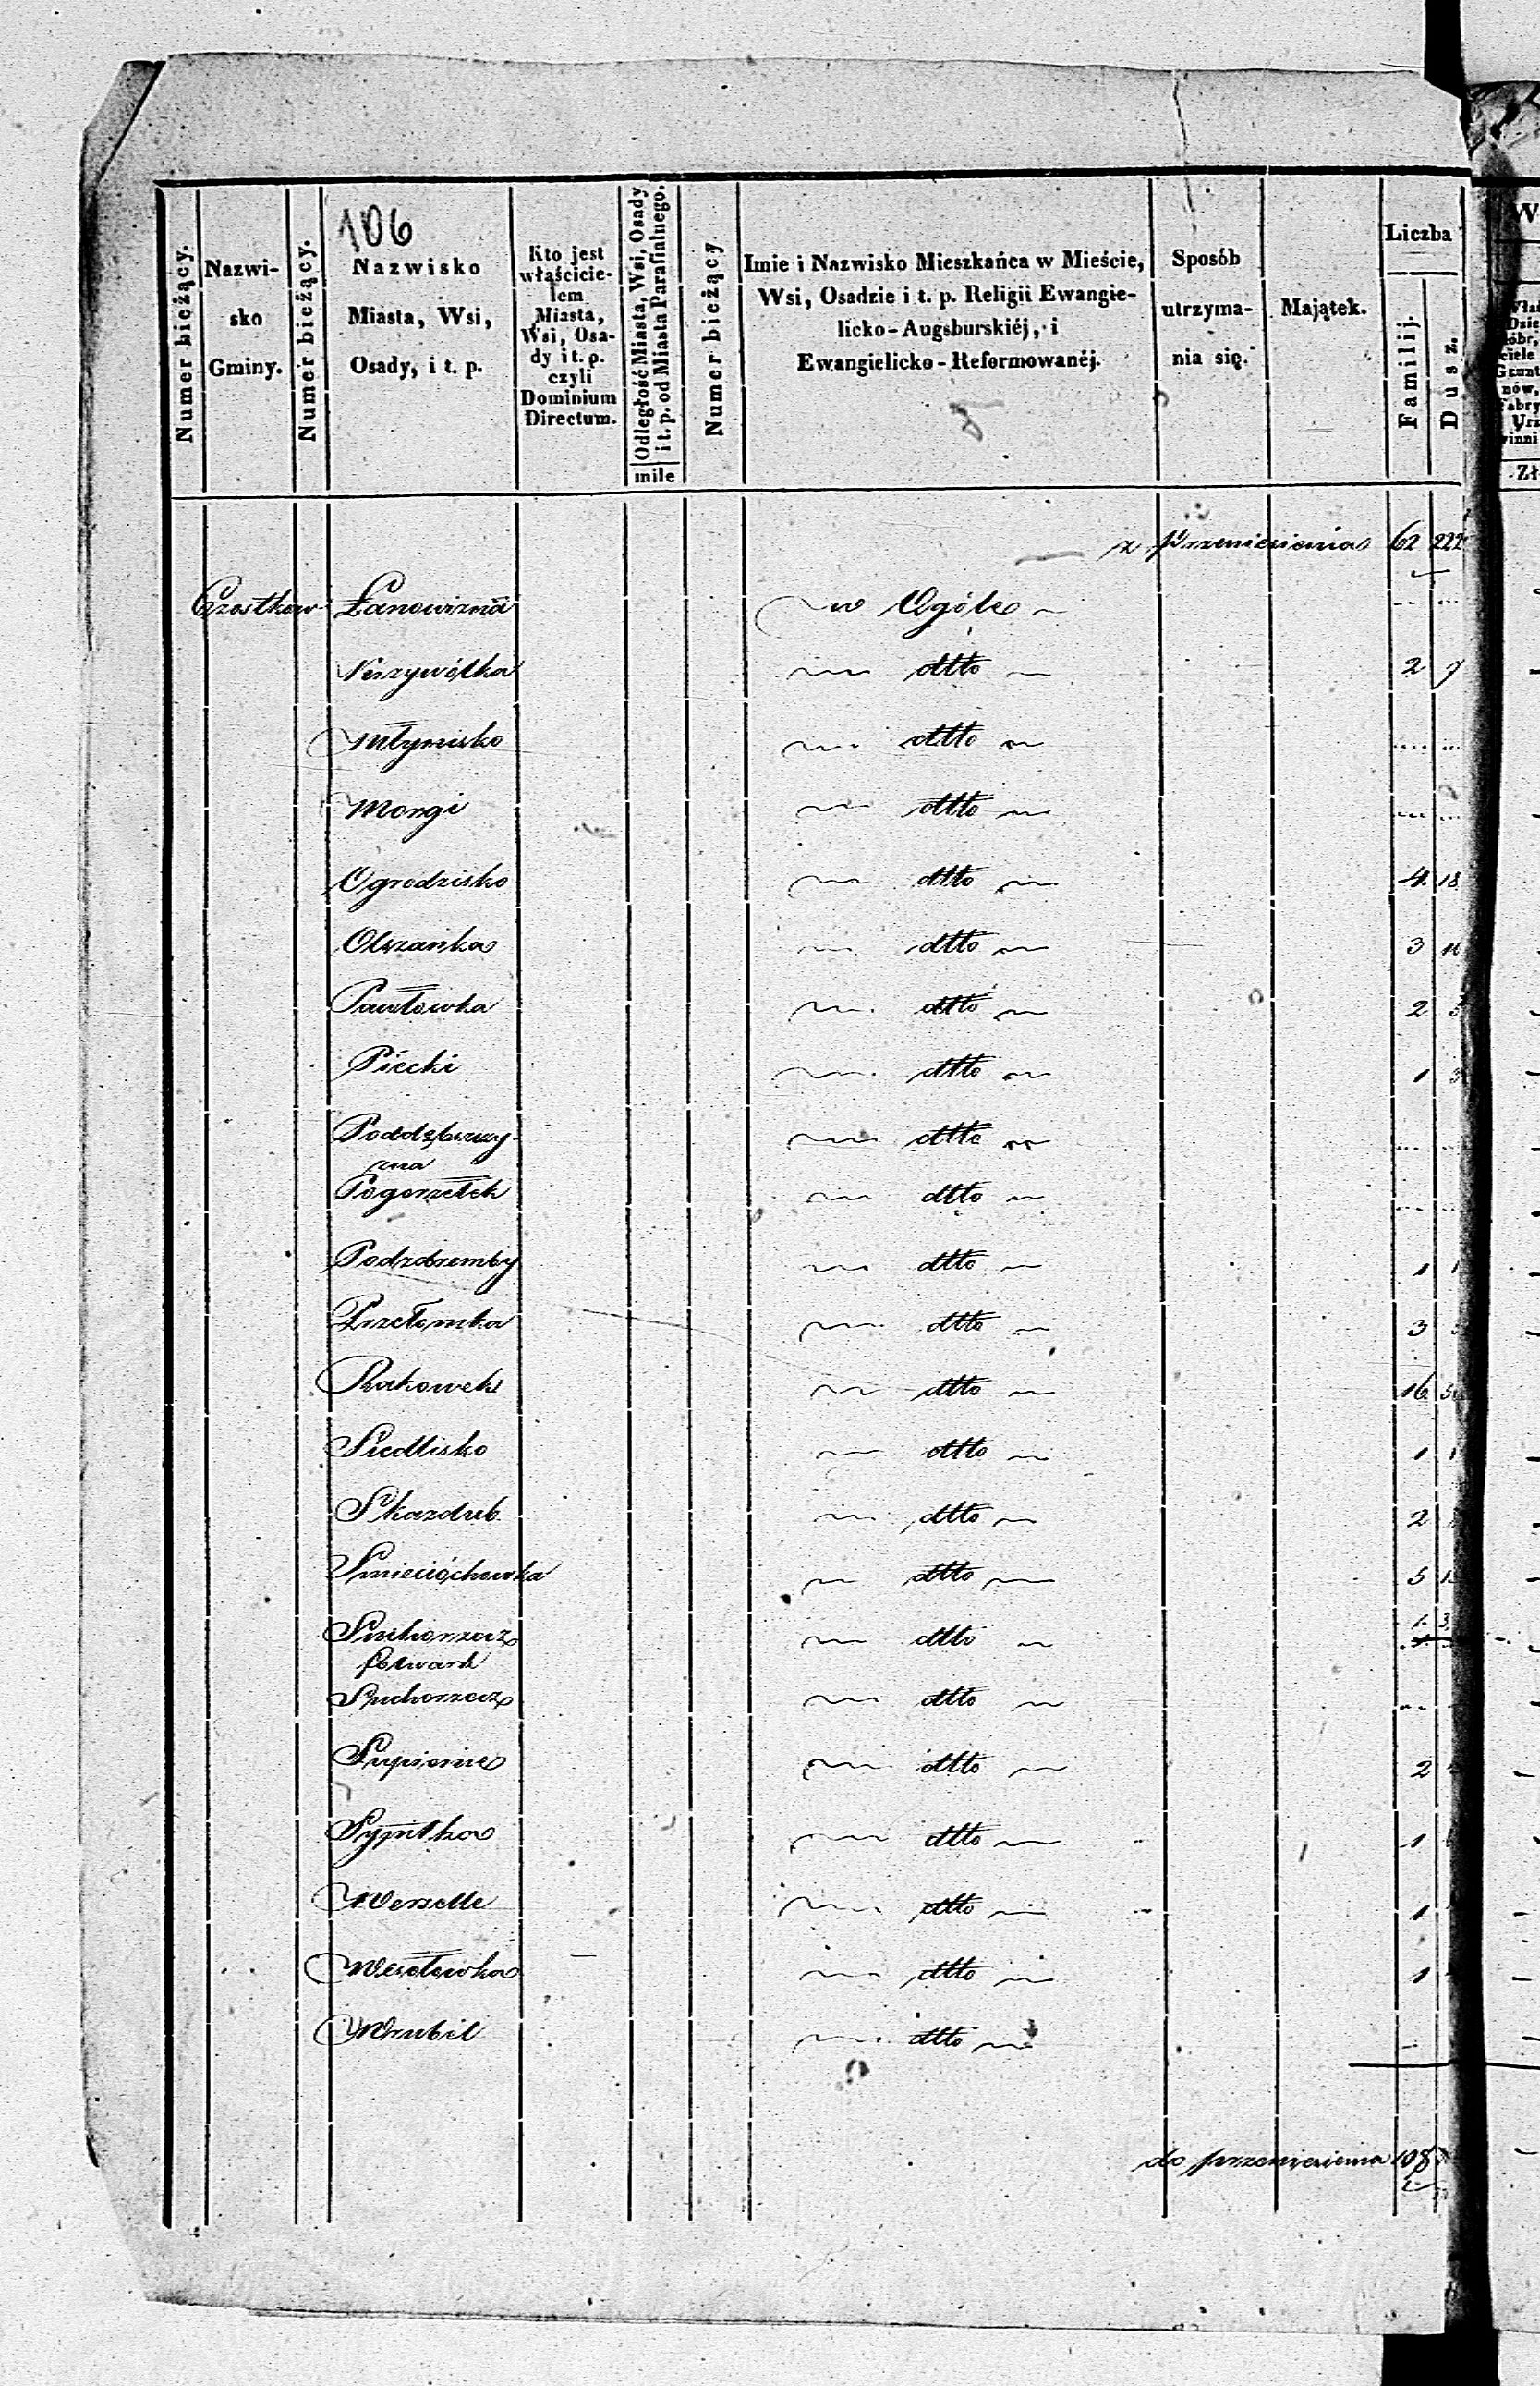 106
Numer bieżący.
Nazwi-
sko
Gminy.
Numer bieżący.
Nazwisko
Miasta, Wsi,
Osady, i t. p.
Kto jest
właścicie-
lem
Miasta,
Wsi, Osa-
dy i t. p.
czyli
Dominium
Directum.
Odległość Miasta, Wsi, Osady
i t. p. od Miasta Parafialnego.
mile
Numer bieżący.
Imie i Nazwisko Mieszkańca w Mieście,
Wsi, Osadzie i t. p. Religii Ewangie-
licko-Augsburskiéj, i
Ewangielicko-Reformowanéj.
Sposób
utrzyma-
nia się.
Majątek.
Liczba
Familij.
Dusz.
z przeniesienia 62 222
Czostkow Łanowizna w Ogóle
Niszywólka dtto 2 7
Młynisko dtto
Morgi dtto
Ogrodzisko dtto 4 18
Olszanka dtto 3
Pawłowka dtto 2
Piecki dtto 1 3
dtto
Pogorzełek dtto
dtto 1
Przełomka dtto 3
Rakowek dtto 16
Siedlisko dtto 1
Skazdub dtto 2
Smieciochowka dtto 5
Suchorzecz dtto 1 3
folwark
Suchorzecz dtto
Supienie dtto 2
Sypitka dtto 1
Werselle dtto 1
Wesołowka dtto 1
Wrubel dtto
do przeniesienia 108